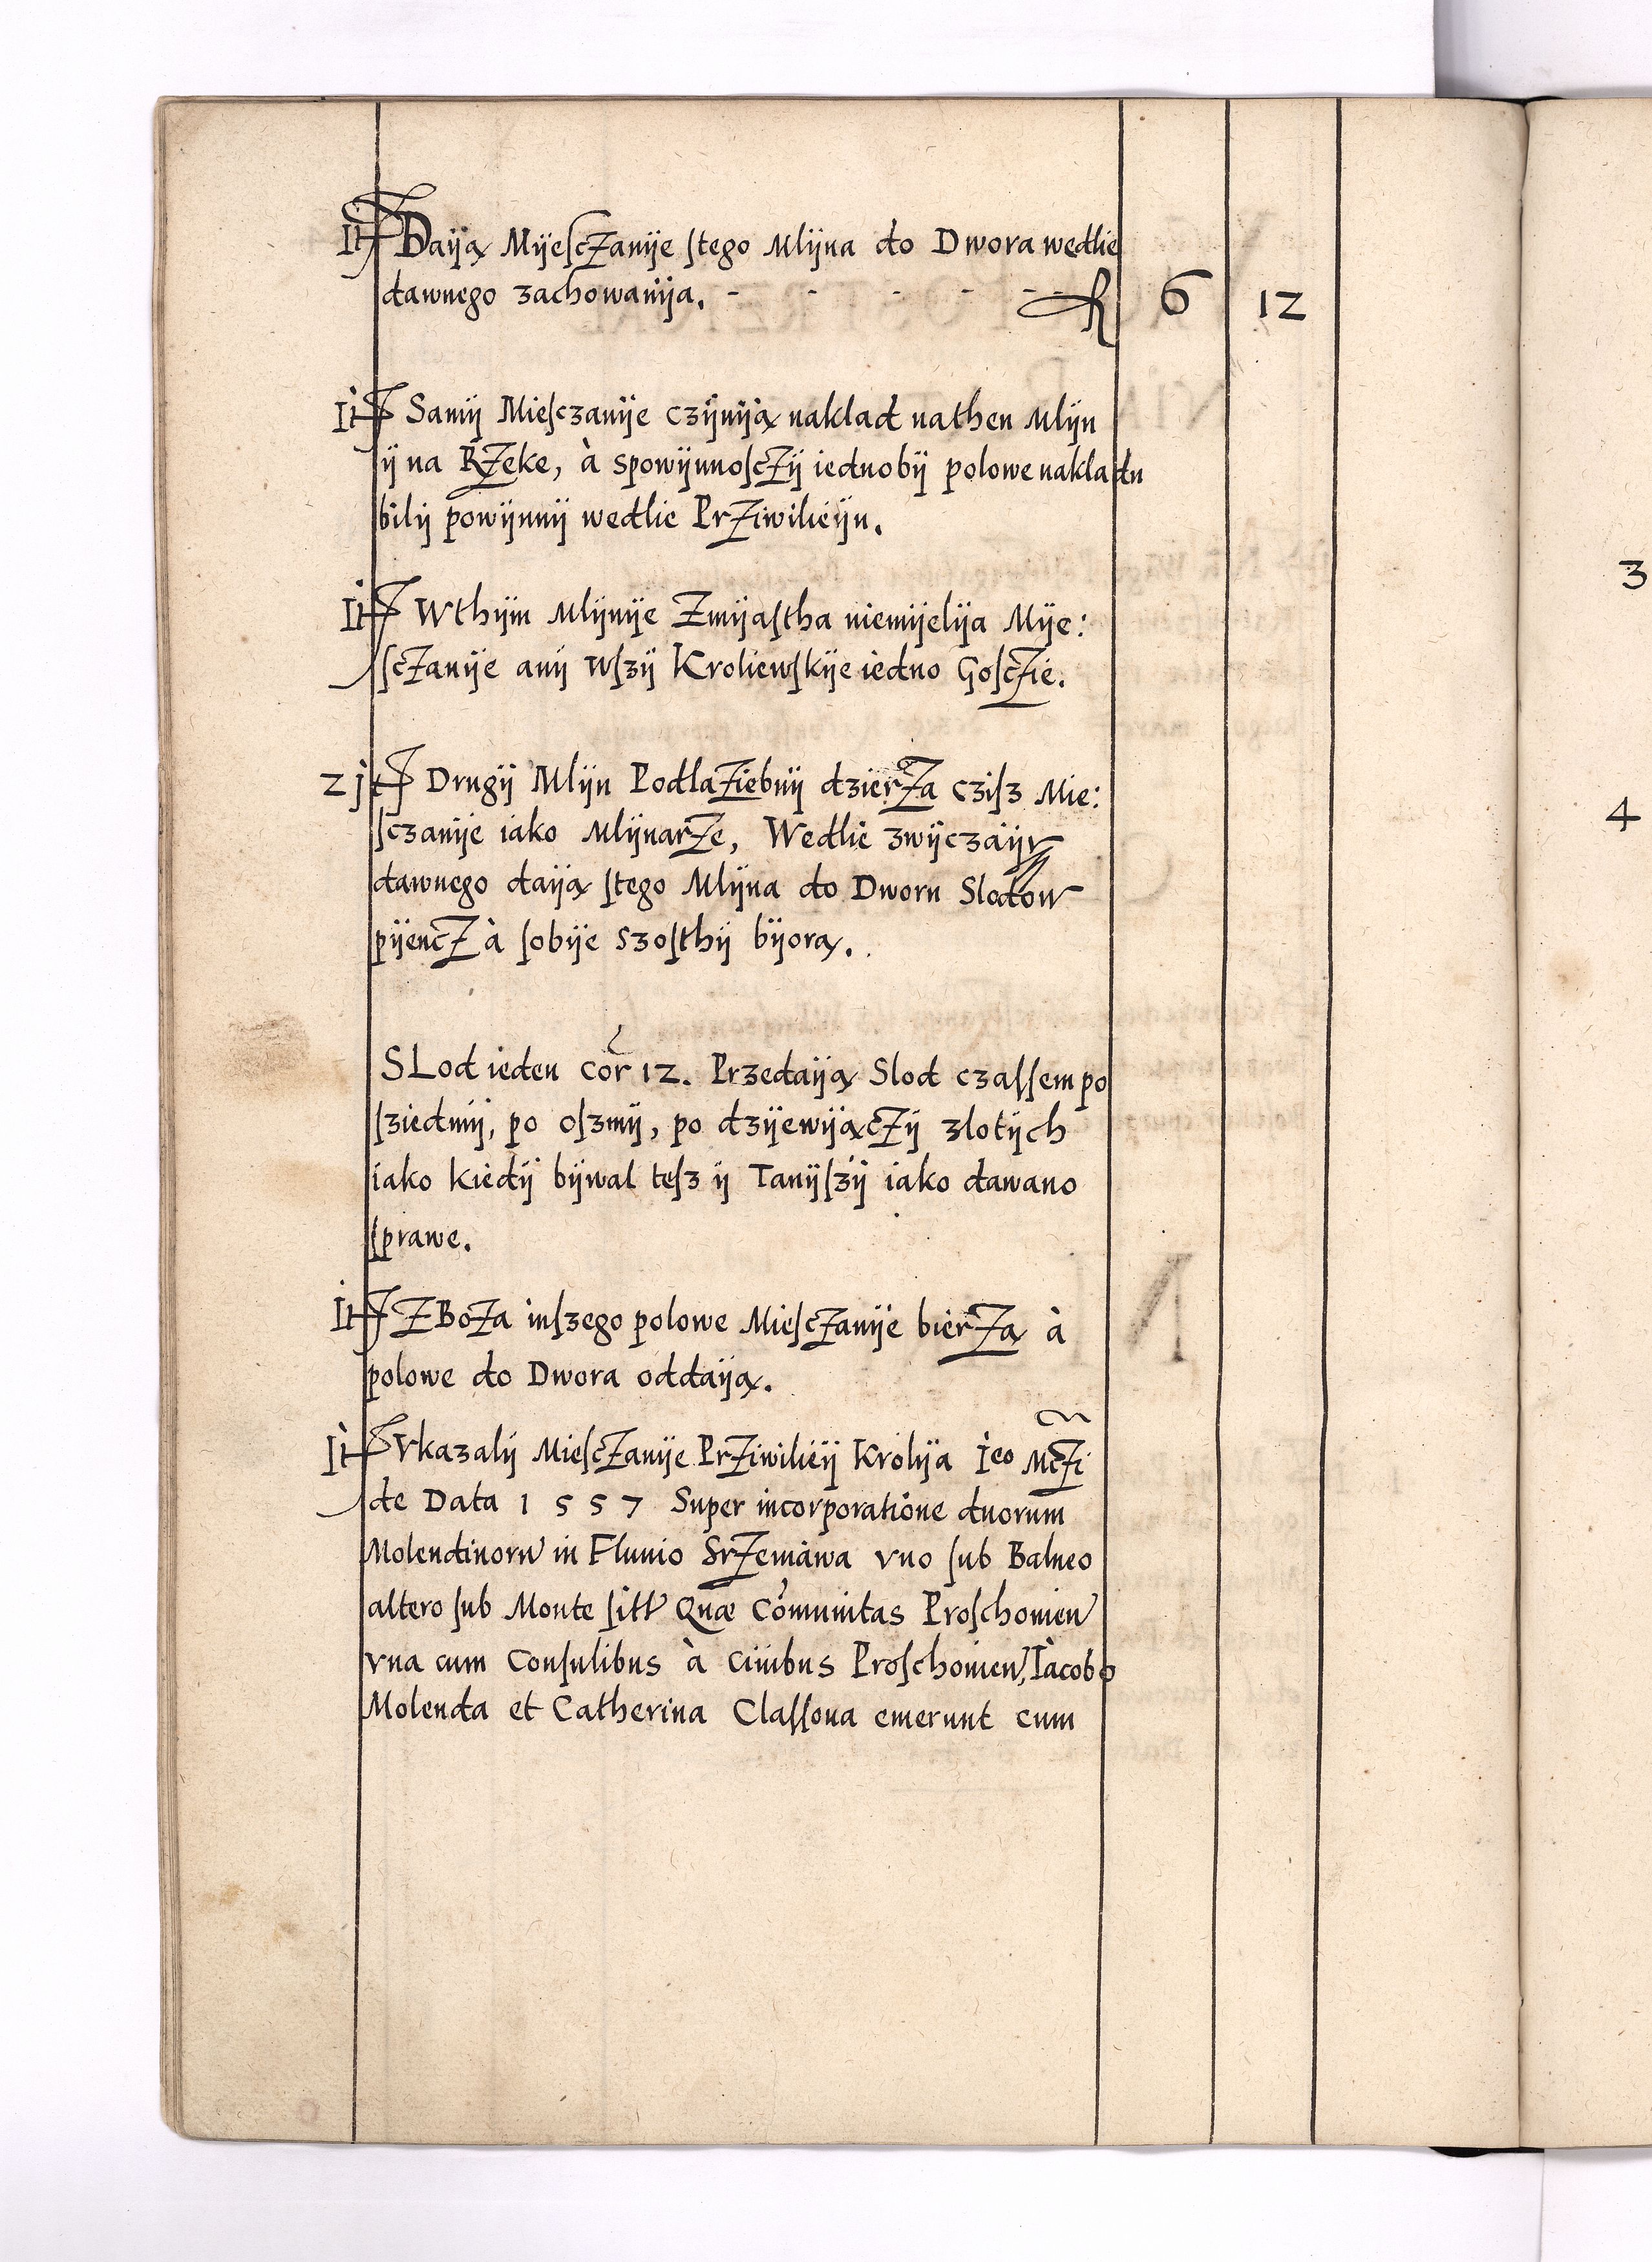 It Daiją MijescZanije stego Mlijna do Dwora wedlie
dawnego zachowanija. - - - - - - R 6 12
It Samij Miesczanije czijniją naklad nathen Mlijn
ij na RZeke, à spowijnnoscZij iednobij polowe nakladu
bilij powijnnij wedlie PrZiwilieiju.
It Wthijm Mlijnije Zmijastha niemijelija Mije:
scZanije anij wszij Kroliewskije iedno GoscZie.
2 It Drugij Mlijn PodlaZiebnij dzierZa czisz Mie:
sczanije iako MlijnarZe, Wedlie zwijczaiju
dawnego daiją stego Mlijna do Dworu Slodow
pijencZ à sobije szosthij bijorą.
SLod ieden cor 12. Przedaiją Slod czassem po
sziedmij, po oszmij, po dzijewijącZij zlotijch
iako kiedij bijwal tesz ij Tanijszij iako dawano
sprawe.
It ZBoZa inszego polowe MiescZanije bierZą à
polowe do Dwora oddaiją.
It Vkazalij MiescZanije PrZiwilieij Krolija Ieo McZi
de Data 1557 Super incorporatione duorum
Molendinoru in Fluuio SrZemawa vno sub Balneo
altero sub Monte sitt Quæ Comunitas Proschouien
vna cum Consulibus à Ciuibus Proschouien, Iacobo
Molenda et Catherina Classoua emerunt cum
3
4